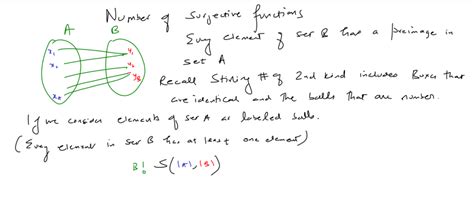 Number of Surjective functions
A B
Every element of set B has a preimage in
set A
x₁ y₁
x₂ y₂
Recall Stirling # of 2nd kind includes Boxes that
are identical and the balls that are number.
If we consider elements of set A as labeled balls.
(Every element in set B has at least one element)
B! S(|A|, |B|)